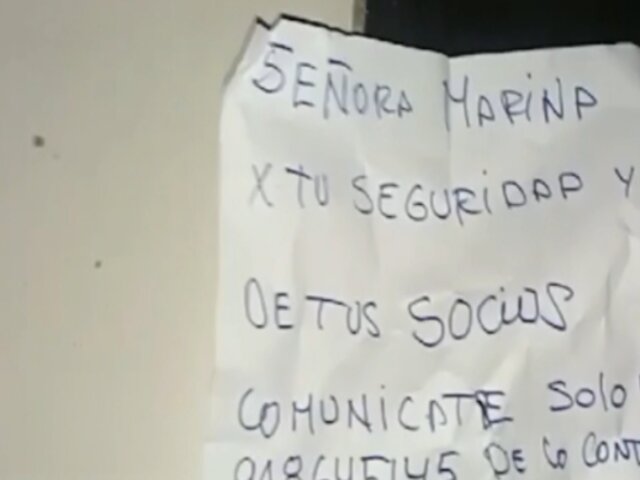 SEÑORA MARINA
X TU SEGURIDAD Y
DE TUS SOCIOS
COMUNICATE SOLO
DE LO CONT